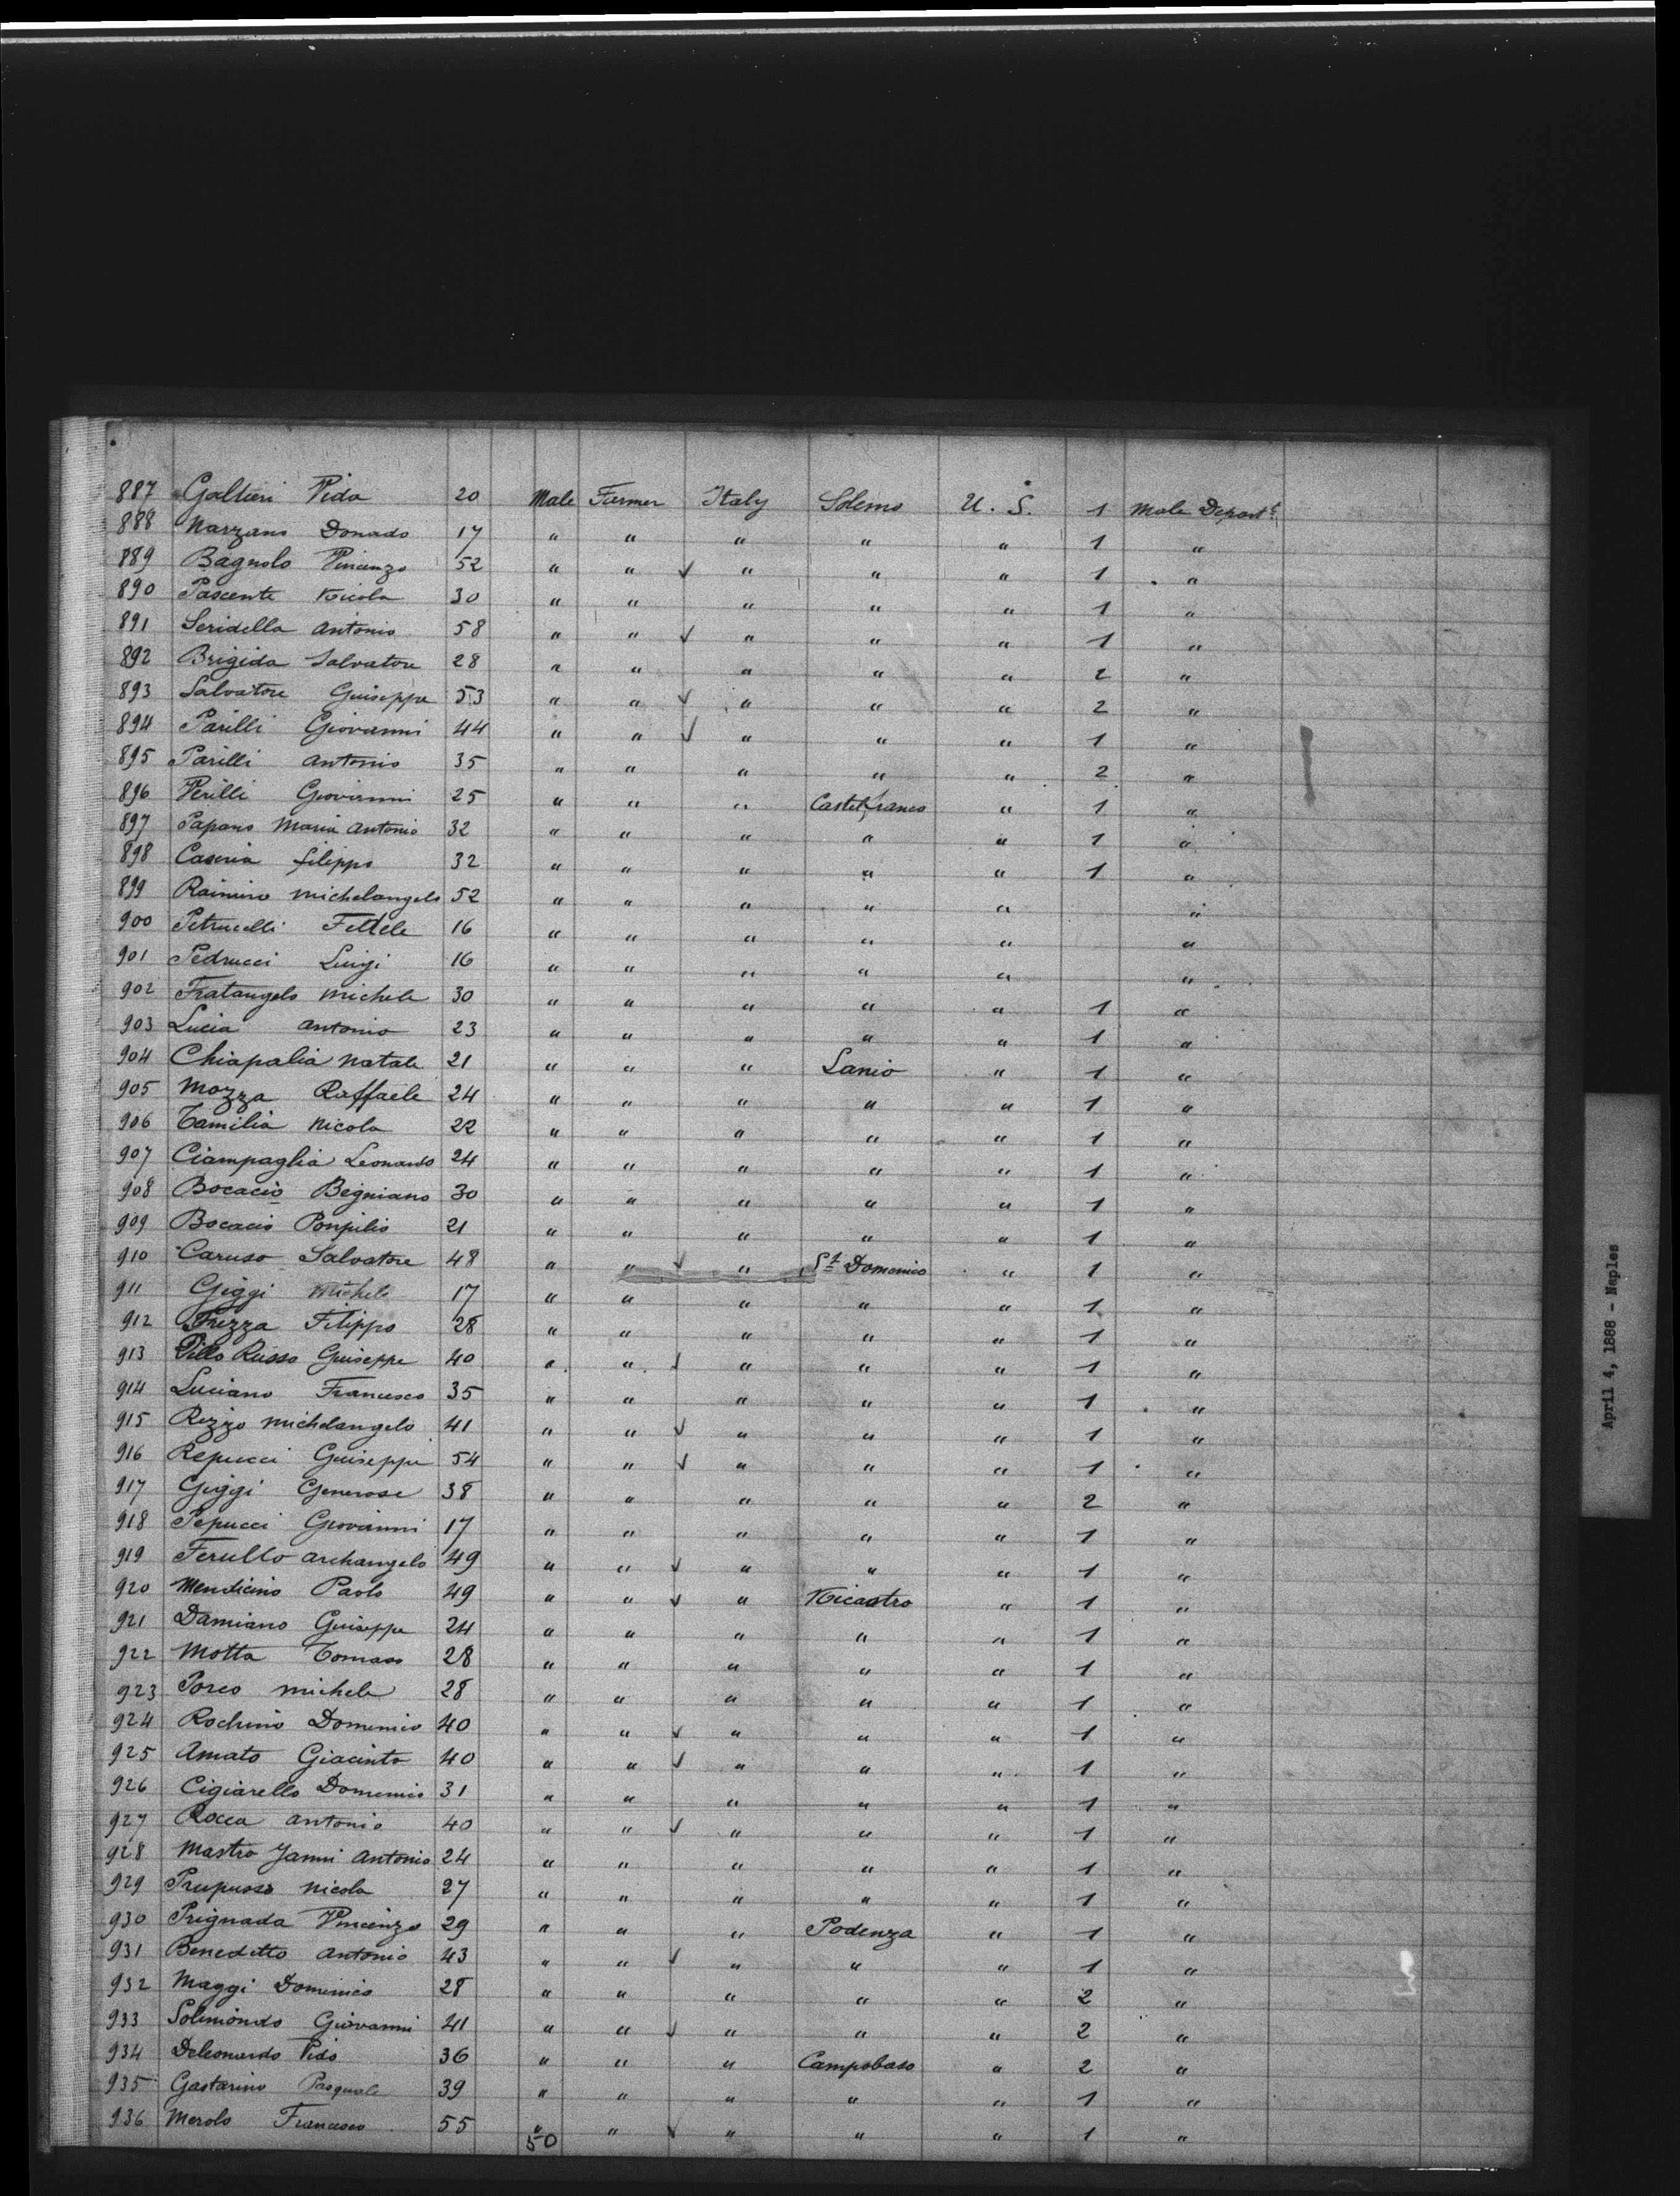 887 Galtieri Vida 20 Male Farmer Italy Solerno U. S. 1 Male Depart.t
888 Narzano Donado 17 " " " " " 1 "
889 Bagnolo Vincenzo 52 " " ✓ " " " 1 "
890 Pascente Nicola 30 " " " " " 1 "
891 Seridella Antonio 58 " " ✓ " " " 1 "
892 Brigida Salvatore 28 " " " " " 2 "
893 Salvatore Guiseppe 53 " " ✓ " " " 2 "
894 Parilli Giovanni 44 " " ✓ " " " 1 "
895 Parilli Antonio 35 " " " " " 2 "
896 Perilli Giovanni 25 " " " Castelfranco " 1 "
897 Papano Maria Antonio 32 " " " " " 1 "
898 Caseria filippo 32 " " " " " 1 "
899 Rainino Michelangelo 52 " " " " " "
900 Petrucelli Fedele 16 " " " " " "
901 Pedrucci Luigi 16 " " " " " "
902 Fratangelo Michele 30 " " " " " 1 "
903 Lucia Antonio 23 " " " " " 1 "
904 Chiapalia Natale 21 " " " Lanio " 1 "
905 Mozza Raffaele 24 " " " " " 1 "
906 Tamilia Nicola 22 " " " " " 1 "
907 Ciampaglia Leonardo 24 " " " " " 1 "
908 Bocacio Begniano 30 " " " " " 1 "
909 Bocacio Ponpilio 21 " " " " " 1 "
910 Caruso Salvatore 48 " " ✓ " St Domenico " 1 "
911 Giggi Michele 17 " " " " " 1 "
912 Frezza Filippo 28 " " " " " 1 "
913 Pillo Russo Guiseppe 40 " " ✓ " " " 1 "
914 Luciano Francesco 35 " " " " " 1 "
915 Rizzo Michelangelo 41 " " ✓ " " " 1 "
916 Repucci Guiseppe 54 " " ✓ " " " 1 "
917 Giggi Generose 38 " " " " " 2 "
918 Pepucci Giovanni 17 " " " " " 1 "
919 Ferullo Archangelo 49 " " ✓ " " " 1 "
920 Mendicino Paolo 49 " " ✓ " Nicastro " 1 "
921 Damiano Guiseppe 24 " " " " " 1 "
922 Motta Tomaso 28 " " " " " 1 "
923 Porco Michele 28 " " " " " 1 "
924 Rochino Domenico 40 " " ✓ " " " 1 "
925 Amato Giacinto 40 " " ✓ " " " 1 "
926 Cigiarello Domenico 31 " " " " " 1 "
927 Rocca Antonio 40 " " ✓ " " " 1 "
928 Mastro Janni Antonio 24 " " " " " 1 "
929 Prupusso Nicola 27 " " " " " 1 "
930 Prignada Vincenzo 29 " " " Podenza " 1 "
931 Benedetto Antonio 43 " " ✓ " " " 1 "
932 Maggi Domenico 28 " " " " " 2 "
933 Solimondo Giovanni 41 " " ✓ " " " 2 "
934 Deleonardo Vido 36 " " " Campobaso " 2 "
935 Gastarino Pasquale 39 " " " " " 1 "
936 Merolo Francesco 55 " " ✓ " " " 1 "
50
April 4, 1888 - Naples